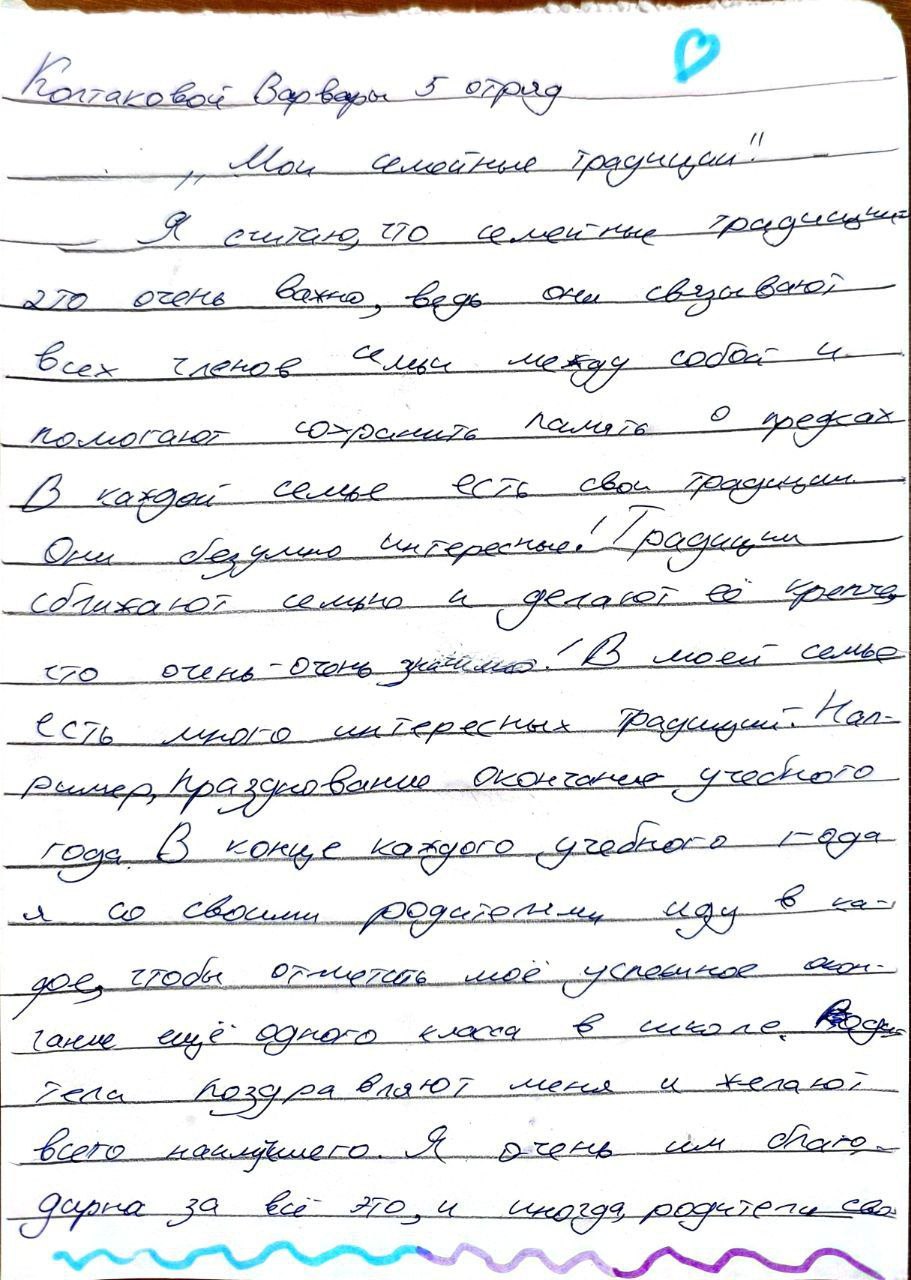 Колтаковой Варвары 5 отряд
„Мои семейные традиции"
Я считаю, что семейные традиции
это очень важно, ведь они связывают
всех членов семьи между собой и
помогают сохранить память о предках
В каждой семье есть свои традиции.
Они безумно интересные! Традиции
сближают семью и делают её крепче,
что очень-очень значимо! В моей семье
есть много интересных традиций. Нап-
ример, празднование окончание учебного
года. В конце каждого учебного года
я со своими родителями иду в ка-
фе, чтобы отметить моё успешное окон-
чание ещё одного класса в школе. Роди-
тели поздравляют меня и желают
всего наилучшего. Я очень им благо-
дарна за всё это, и иногда, родители сво-